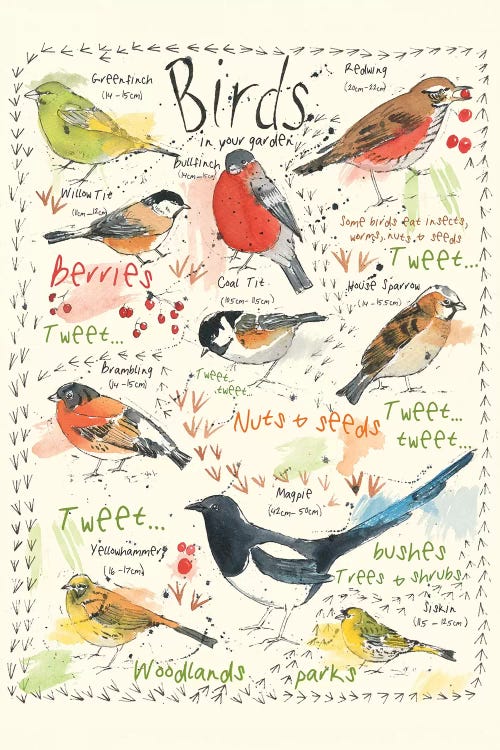 Birds
in your garden
Greenfinch
(14-15cm)
Redwing
(20cm-22cm)
Bullfinch
(14cm-15cm)
Willow Tit
(11cm-12cm)
Some birds eat insects,
worms, nuts & seeds
Tweet...
Berries
Coal Tit
(10.5cm-11.5cm)
House Sparrow
(14-15.5cm)
Tweet...
Brambling
(14-15cm)
Tweet...
tweet...
Nuts & seeds
Tweet...
tweet...
Magpie
(42cm-50cm)
Tweet...
Yellowhammer
(16-17cm)
bushes
Trees & shrubs
Siskin
(11.5-12.5cm)
Woodlands
parks